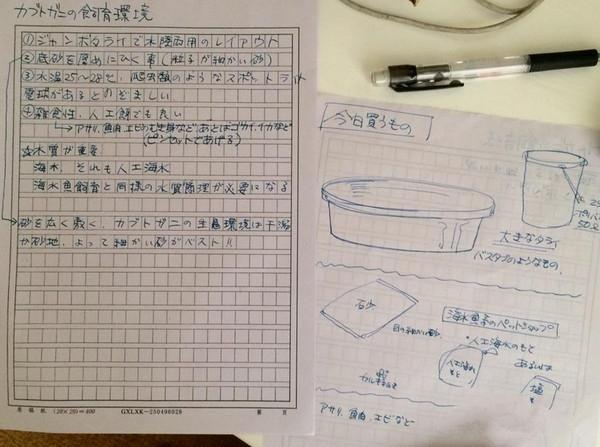 カブトガニの飼育環境
①ジャンボタライで水陸両用のレイアウト
②底砂を厚めにひく事(粒子が細かい砂)
③水温25〜28℃、爬虫類のようなスポットライト
電球があるとのぞましい
④雑食性、人工餌でも良い
→アサリ、魚肉、エビのむき身など あとはゴカイ、イカなど
(ピンセットであげる)
水質が重要
海水、それも人工海水
海水魚飼育と同様の水質管理が必要になる
砂を広く敷く、カブトガニの生息環境は干潟
か砂地、よって細かい砂がベスト!!
原稿用紙 (20×20)=400
GXLXK-250498028
今日買うもの
大きなタライ
バスタブのようなもの、
石砂
目の細かい砂、
海水魚のペットショップ
・人工海水のもと
人工海水の
もと
あるいは
塩
カルキぬき
アサリ、魚肉、エビなど